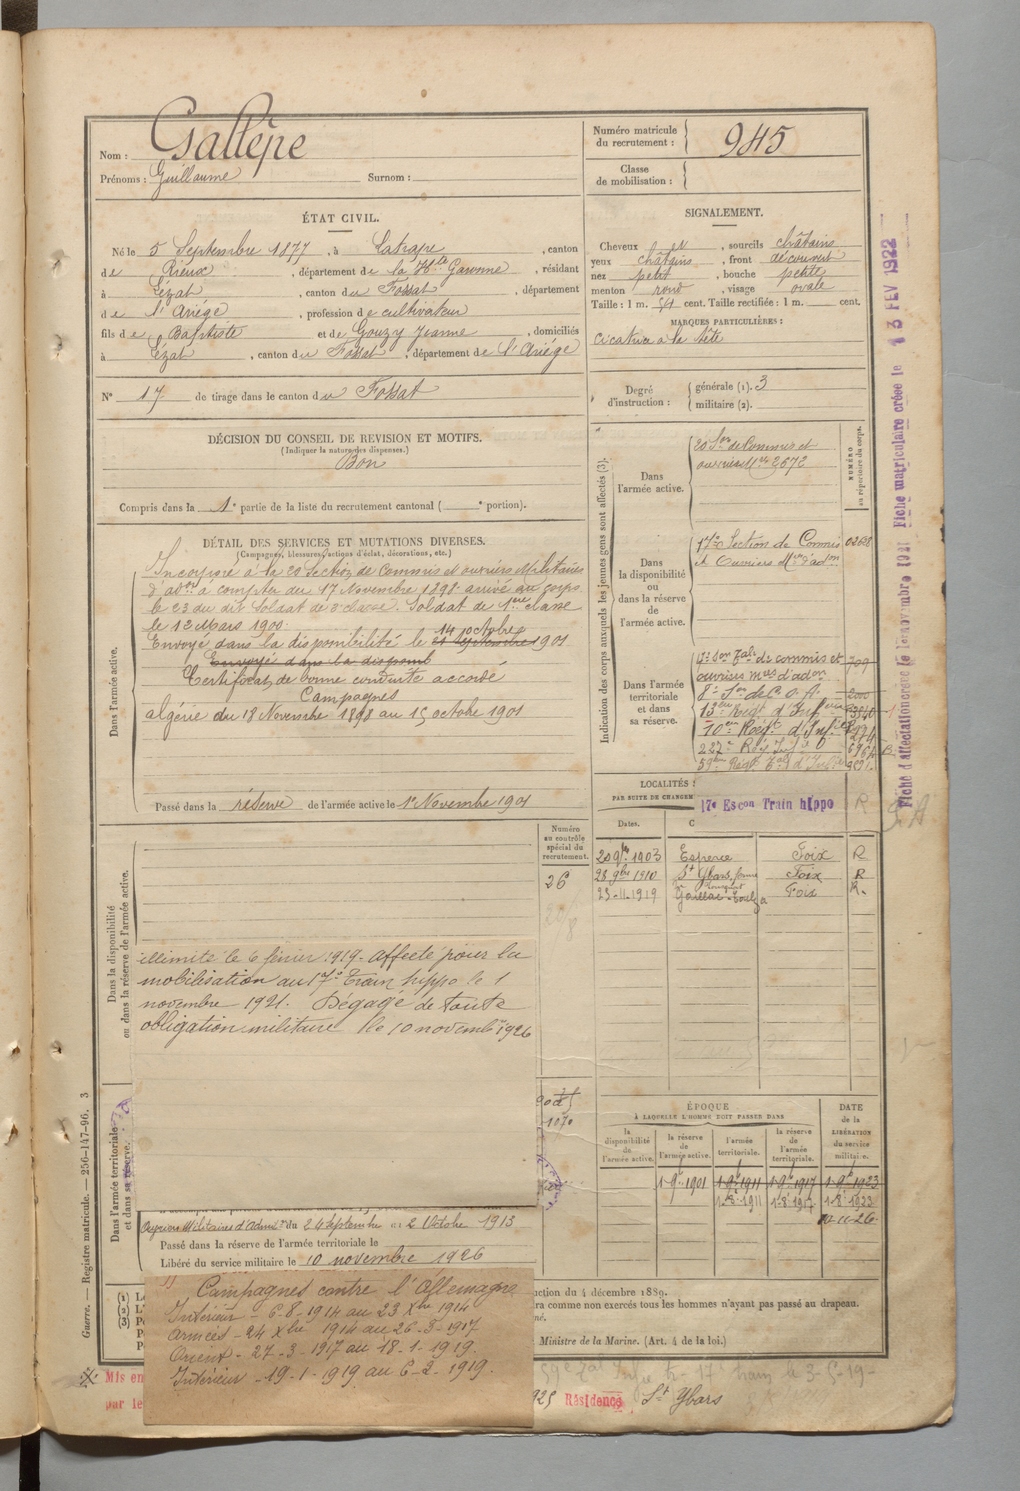 Nom : Gallêpe
Prénoms : Guillaume Surnom :
Numéro matricule
du recrutement : 945
Classe
de mobilisation :
ÉTAT CIVIL.
Né le 5 Septembre 1877, à Latrape, canton
de Rieux, département de la Hte Garonne, résidant
à Lézat, canton du Fossat, département
de l'Ariége, profession de cultivateur
fils de Baptiste et de Gouzy Jeanne, domiciliés
à Lézat, canton du Fossat, département de l'Ariége
N° 17 de tirage dans le canton du Fossat
SIGNALEMENT.
Cheveux, sourcils châtains
yeux châtains, front découvert
nez petit, bouche petite
menton rond, visage ovale
Taille : 1 m. 54 cent. Taille rectifiée : 1 m. cent.
MARQUES PARTICULIÈRES :
cicatrice à la tête
Degré
d'instruction :
générale (1). 3
militaire (2).
DÉCISION DU CONSEIL DE REVISION ET MOTIFS.
(Indiquer la nature des dispenses.)
Bon
Compris dans la 1e partie de la liste du recrutement cantonal ( e portion).
DÉTAIL DES SERVICES ET MUTATIONS DIVERSES.
(Campagnes, blessures, actions d'éclat, décorations, etc.)
Dans l'armée active.
Incorporé à la 20 Section de Commis et ouvriers Militaires
d'adon à compter du 17 Novembre 1898 arrivé au corps
le 23 du dit Soldat de 2e classe. Soldat de 1ere classe
le 12 Mars 1900.
14 octobre
Envoyé dans la disponibilité le 21 Septembre 1901
Envoyé dans la disponib
Certificat de bonne conduite accordé
Campagnes
algérie du 18 Novembre 1898 au 15 octobre 1901
Passé dans la réserve de l'armée active le 1er Novembre 1901
Indication des corps auxquels les jeunes gens sont affectés (3).
NUMÉRO
au répertoire du corps.
Dans
l'armée active.
20 Son de Commis et
ouvriers Mres 2672
Dans
la disponibilité
ou
dans la réserve
de
l'armée active.
17e Section de Commis
et Ouvriers Mres d'adon
Dans l'armée
territoriale
et dans
sa réserve.
17e Son Tale de commis et 709
ouvriers mres d'adon
8e Son de C. O. A. 2000
13eme Regt d'Infrie
10eme Regt d'Infie
227e Reg Infie
59eme Regt Tal d'Infie
LOCALITÉS
PAR SUITE DE CHANGEM
17e Escon Train hippo R
Dates. C
20 9bre 1903 Esperce Foix R
28 9bre 1910 St Ybars, ferme Foix R
23-11-1919 Gaillac-Toulza Foix R.
Numéro
au contrôle
spécial du
recrutement.
26
Dans la disponibilité
ou dans la réserve de l'armée active.
illimité le 6 février 1919. Affecté pour la
mobilisation au 17e Train hippo le 1
novembre 1921. Dégagé de toute
obligation militaire le 10 novembre 1926
1070
Dans l'armée territoriale
et dans sa réserve.
ÉPOQUE
À LAQUELLE L'HOMME DOIT PASSER DANS
DATE
de la
LIBÉRATION
du service
militaire.
la
disponibilité
de
l'armée active.
la réserve
de
l'armée active.
l'armée
territoriale.
la réserve
de
l'armée
territoriale.
1-9bre 1901 1-9bre 1911 1-9bre 1917 1-9bre 1923
1-8-1911 1-8-1917 1-8-1923
10-11-26
Militaires d'Admon du 24 Septembre au 2 Octobre 1913
Passé dans la réserve de l'armée territoriale le
Libéré du service militaire le 10 novembre 1926
Campagnes contre l'Allemagne
Intérieur - 6-8-1914 au 23 Xbre 1914
Armées - 24 Xbre 1914 au 26-3-1917
Orient - 27-3-1917 au 18-1-1919.
Intérieur - 19-1-1919 au 6-2-1919.
uction du 4 décembre 1889.
ra comme non exercés tous les hommes n'ayant pas passé au drapeau.
né.
Ministre de la Marine. (Art. 4 de la loi.)
Mis en
par le
925 Résidence St Ybars
Guerre. — Registre matricule. — 256-147-96. 3
Fiche d'affectation créée le 1er novembre 1921 Fiche matriculaire créée le 3 FEV 1922